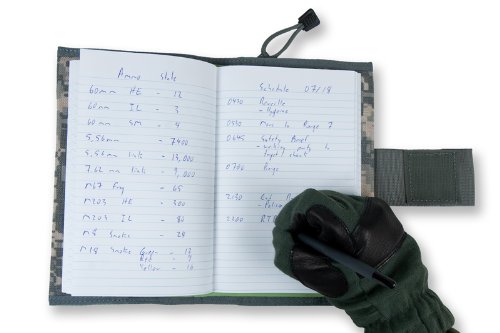 Ammo State
60mm HE - 12
60mm IL - 3
60mm SM - 9
5.56mm - 7400
5.56mm link - 19,000
7.62mm link - 9,000
M67 Frag - 65
M203 HE - 300
M203 IL - 80
M8 Smoke - 28
M18 Smoke Green - 13
Red - 7
Yellow - 10
Schedule 07/18
0430 Reveille
- Hygiene
0530 Move to Range 7
0645 Safety Brief
- working party to
target / check
0700 Range
2130 End
2200 R.T.